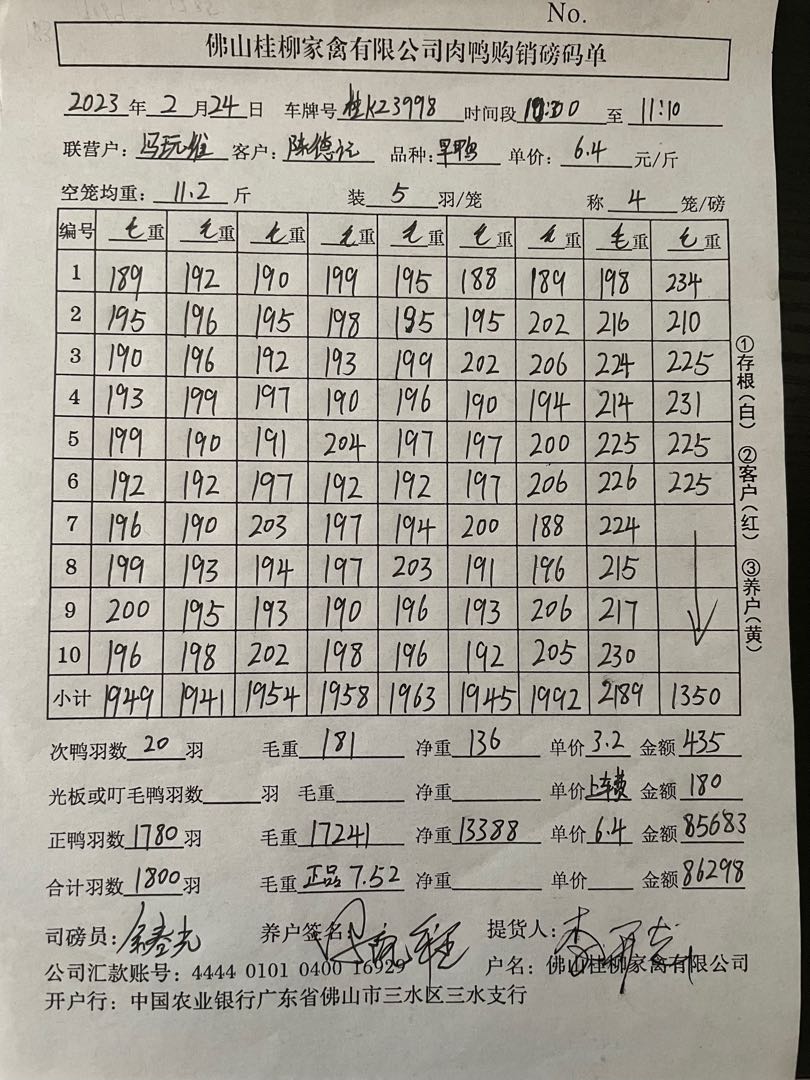 No.
佛山桂柳家禽有限公司肉鸭购销磅码单
2023 年 2 月 24 日 车牌号 桂K23998 时间段 至 11:10
联营户: 冯玩维 客户: 陈德记 品种: 旱鸭 单价: 6.4 元/斤
空笼均重: 11.2 斤 装 5 羽/笼 称 4 笼/磅
编号 毛重 毛重 毛重 毛重 毛重 毛重 毛重 毛重 毛重
1 189 192 190 199 195 188 189 198 234
2 195 196 195 198 195 195 202 216 210
3 190 196 192 193 199 202 206 224 225
4 193 199 197 190 196 190 194 214 231
5 199 190 191 204 197 197 200 225 225
6 192 192 197 192 192 197 206 226 225
7 196 190 203 197 194 200 188 224
8 199 193 194 197 203 191 196 215
9 200 195 193 190 196 193 206 217
10 196 198 202 198 196 192 205 230
小计 1949 1941 1954 1958 1963 1945 1992 2189 1350
①存根(白) ②客户(红) ③养户(黄)
次鸭羽数 20 羽 毛重 181 净重 136 单价 3.2 金额 435
光板或叮毛鸭羽数 羽 毛重 净重 单价 上车费 金额 180
正鸭羽数 1780 羽 毛重 17241 净重 13388 单价 6.4 金额 85683
合计羽数 1800 羽 毛重 正品 7.52 净重 单价 金额 86298
司磅员: 养户签名: 提货人:
公司汇款账号: 4444 0101 0400 16929 户名: 佛山桂柳家禽有限公司
开户行: 中国农业银行广东省佛山市三水区三水支行